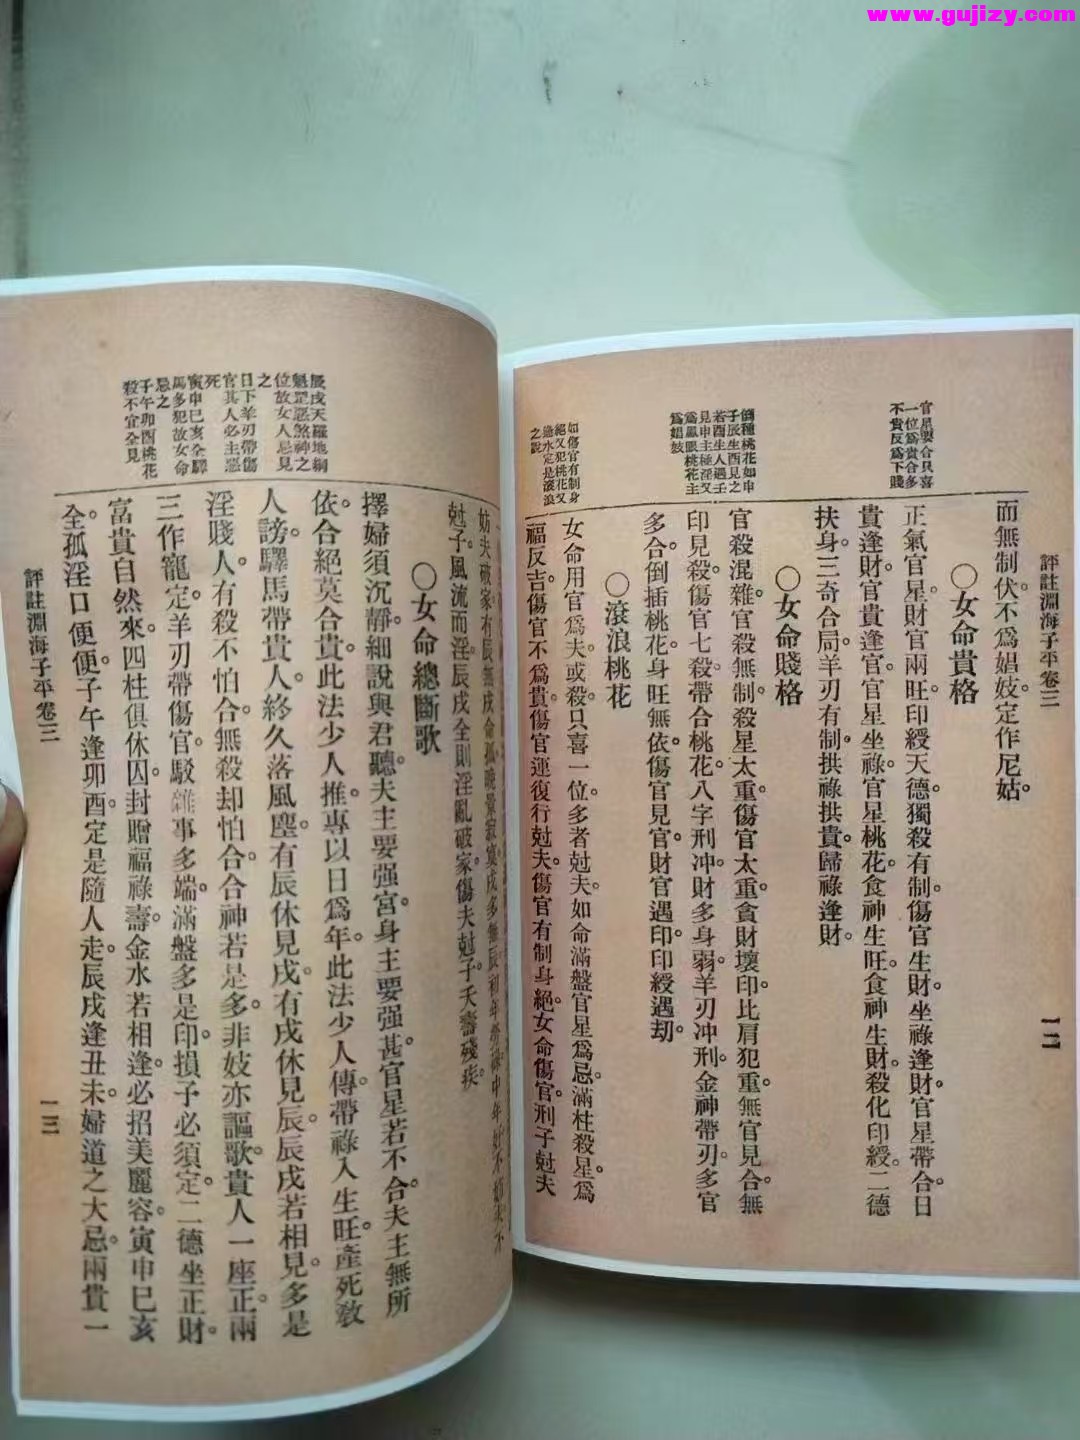 www.gujizy.com
評註淵海子平卷三
一二
官星要合只喜
一位爲貴合多
不貴反爲下賤
倒種桃花如申
子辰生酉見之
若酉生人遇壬
見申主極淫又
爲鳳眼桃花主
爲娼妓
如傷官有制身
絕又犯桃花又
逢水定是滾浪
之說
而無制伏。不爲娼妓。定作尼姑。
○女命貴格
正氣官星。財官兩旺。印綬天德。獨殺有制。傷官生財。坐祿逢財。官星帶合。日
貴逢財。官貴逢官。官星坐祿。官星桃花。食神生旺。食神生財。殺化印綬。二德
扶身。三奇合局。羊刃有制。拱祿拱貴。歸祿逢財。
○女命賤格
官殺混雜。官殺無制。殺星太重。傷官太重。貪財壞印。比肩犯重。無官見合。無
印見殺。傷官七殺。帶合桃花。八字刑冲。財多身弱。羊刃冲刑。金神帶刃。多官
多合。倒插桃花。身旺無依。傷官見官。財官遇印。印綬遇刧。
○滾浪桃花
女命用官爲夫。或殺。只喜一位。多者尅夫。如命滿盤官星爲忌。滿柱殺星。爲
福反吉。傷官不爲貴。傷官運復行尅夫。傷官有制身絕。女命傷官。刑子尅夫
辰戌天羅地網
魁罡惡煞神之
位故女人忌見
之
日下羊刃帶傷
官其人必主惡
死
寅申巳亥全驛
馬多犯故女命
忌之
子午卯酉桃花
殺不宜全見
妨夫破家。有辰無戌命孤。晚景寂寞。戌多無辰。和年勞碌。中年妨
尅子。風流而淫。辰戌全則淫亂。破家傷夫尅子。夭壽殘疾。
○女命總斷歌
擇婦須沉靜。細說與君聽。夫主要强宮。身主要强甚。官星若不合。夫主無所
依。合絕莫合貴。此法少人推。專以日爲年。此法少人傳。帶祿入生旺。產死敎
人謗。驛馬帶貴人。終久落風塵。有辰休見戌。有戌休見辰。辰戌若相見。多是
淫賤人。有殺不怕合。無殺却怕合。合神若是多。非妓亦謳歌。貴人一座正。兩
三作寵定。羊刃帶傷官。駁雜事多端。滿盤多是印。損子必須定。二德坐正財。
富貴自然來。四柱俱休囚。封贈福祿壽。金水若相逢。必招美麗容。寅申巳亥
全。孤淫口便便。子午逢卯酉。定是隨人走。辰戌逢丑未。婦道之大忌。兩貴一
評註淵海子平卷三
一三